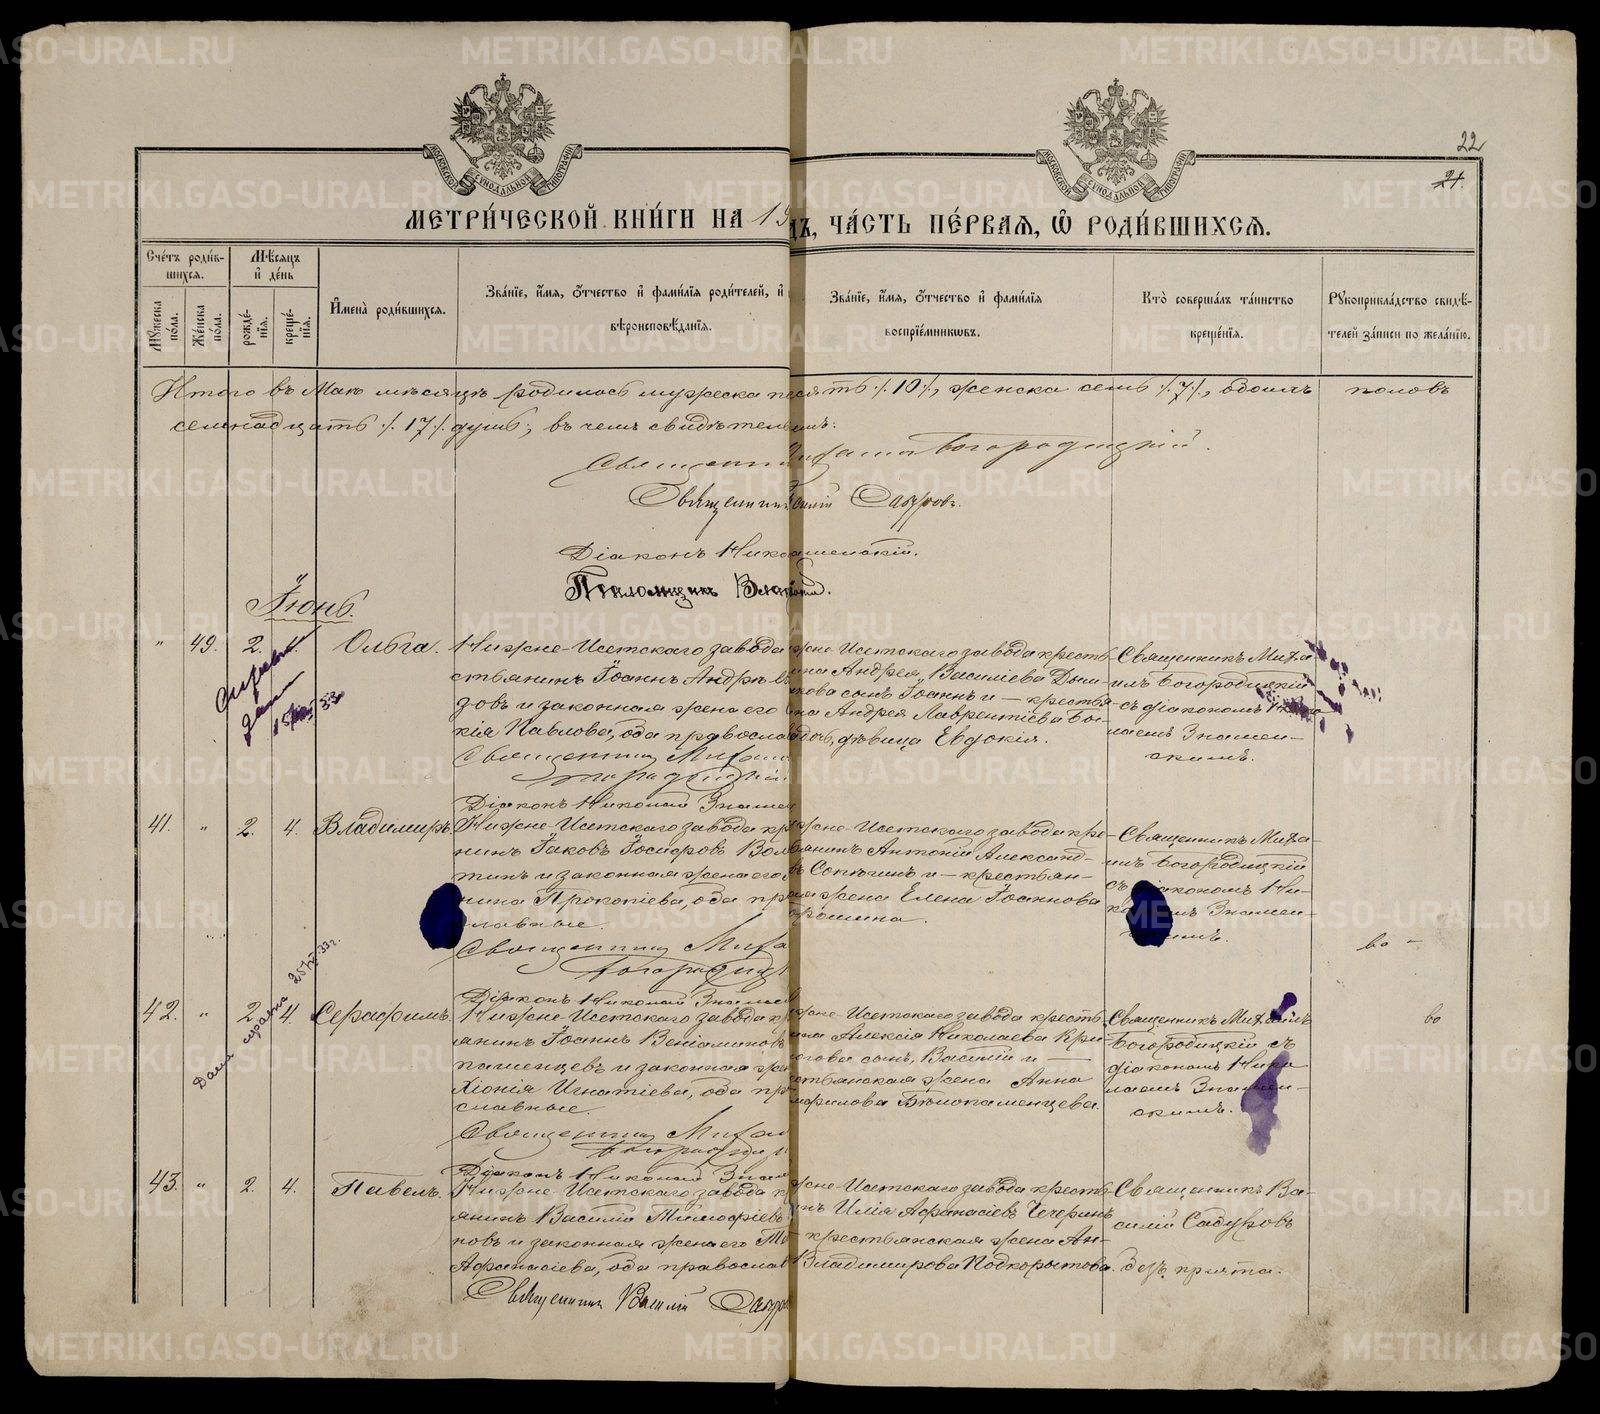 22
21.
МОСКОВСКОЙ СѴНОДАЛЬНОЙ ТИПОГРАФІИ
МОСКОВСКОЙ СѴНОДАЛЬНОЙ ТИПОГРАФІИ
МЕТРИ́ЧЕСКОЙ КНИ́ГИ НА 19
ДЪ, ЧА́СТЬ ПЕ́РВАЯ, Ѽ РОДИ́ВШИХСЯ.
Сче́тъ роди́в-
шихся.
Мꙋ́жеска по́ла.
Же́нска по́ла.
Мѣ́сяцъ
и҆ де́нь
рожде́-
нїя.
креще́-
нїя.
И҆мена̀ роди́вшихся.
Зва́нїе, и҆́мя, ѻ҆́тчество и҆ фами́лїя роди́телей, и҆
вѣроисповѣ́данїя.
Зва́нїе, и҆́мя, ѻ҆́тчество и҆ фами́лїя
воспрїе́мникѡвъ.
Кто̀ соверша́лъ та́инство
креще́нїя.
Рꙋкоприкла́дство свидѣ́-
телей за́писи по жела́нїю.
Итого въ Маѣ мѣсяцѣ родилось мужеска десять /.10/., женска семь /.7/., обоихъ половъ
семнадцать /.17/. душъ; въ чемъ свидѣтельствуемъ:
Священникъ Богородицкій.
Священникъ Садуковъ.
Діаконъ Никол Знаменскій.
Псаломщикъ
Іюнь.
" 49. 2. 4. Ольга.
Нижне-Исетскаго завода
стьянинъ Іоаннъ Андрѣевъ
зовъ и законная жена его
кія Павлова, оба православ
Священникъ Михаи
Богородицкій
Діаконъ Николай Знамен
Нижне-Исетскаго завода кресть-
ина Андрея Васильева
кова сынъ Іоаннъ и — крестья-
на Андрея Лаврентіева Бо-
дочь, дѣвица Евдокія.
Священникъ Миха-
илъ Богородицкій
съ діакономъ Нико-
лаемъ Знамен-
скимъ.
15/ 33
41. " 2. 4. Владимиръ.
Нижне-Исетскаго завода кр
нинъ Іаковъ Іосифовъ
тинъ и законная жена его
нина Прокопіева, оба пр
славные.
Священникъ Миха
Богородиц
Діаконъ Николай Знамен
жне-Исетскаго завода кре-
янинъ Антоній Александ-
въ и — крестьян-
ая жена Елена Іоаннова
Священникъ Миха-
илъ Богородицкій
съ діакономъ Ни-
ко емъ Знамен-
скимъ.
42. " 2. 4. Серафимъ.
Нижне-Исетскаго завода кр
янинъ Іоаннъ Веніаминовъ
паменцевъ и законная жен
Хіонія Игнатіева, оба пр
славные.
Священникъ Михаи
Богородиц
Діаконъ Николай Знам
жне-Исетскаго завода кресть-
ина Алексія Николаева Кри-
огова сынъ, Василій и —
стьянская жена Анна
Бѣлопаменцева.
Священникъ Михаилъ
Богородицкій съ
діакономъ Нико-
лаемъ Знамен-
скимъ.
Дана справка 33г.
43. " 2. 4. Павелъ.
Нижне-Исетскаго завода кр
янинъ Василій Тимофѣевъ
повъ и законная жена его
Афанасіева, оба православ
Священникъ Василій Садук
жне-Исетскаго завода кресть-
нъ Илія Афанасіевъ Чечеринъ
крестьянская жена Ан-
Владимирова Подкорытова.
Священникъ Ва-
силій Садуковъ
безъ причта.
METRIKI.GASO-URAL.RU